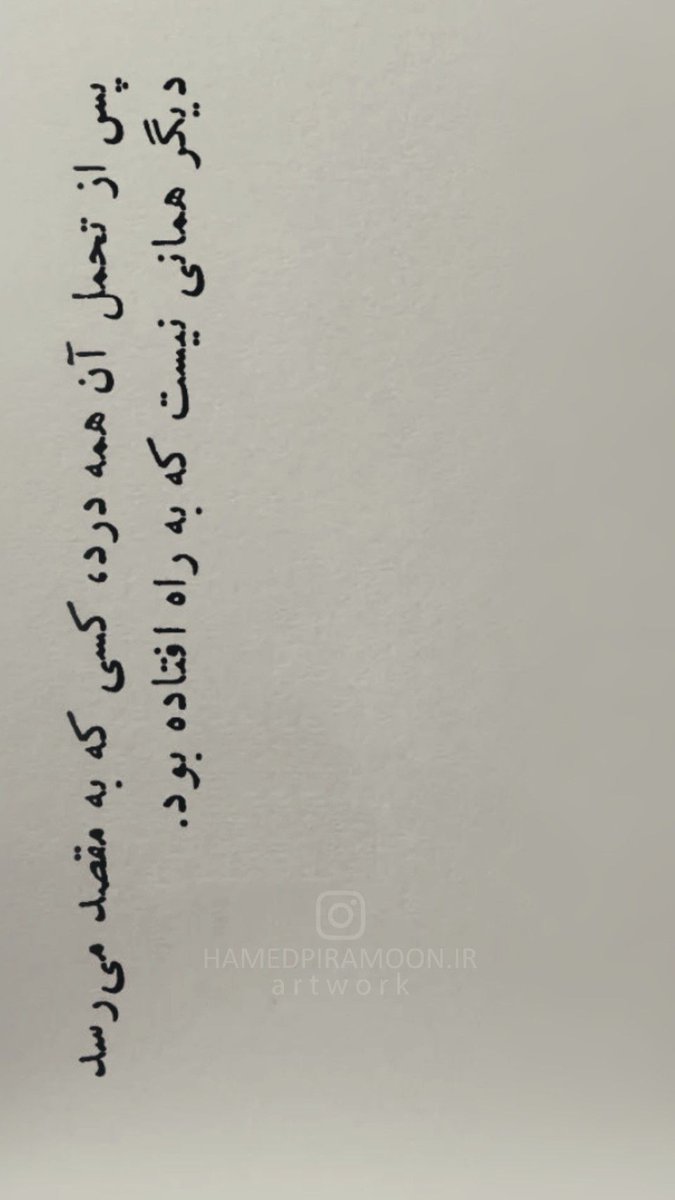 پس از تحمل آن همه درد، کسی که به مقصد می‌رسد
دیگر همانی نیست که به راه افتاده بود.
HAMEDPIRAMOON.IR
artwork